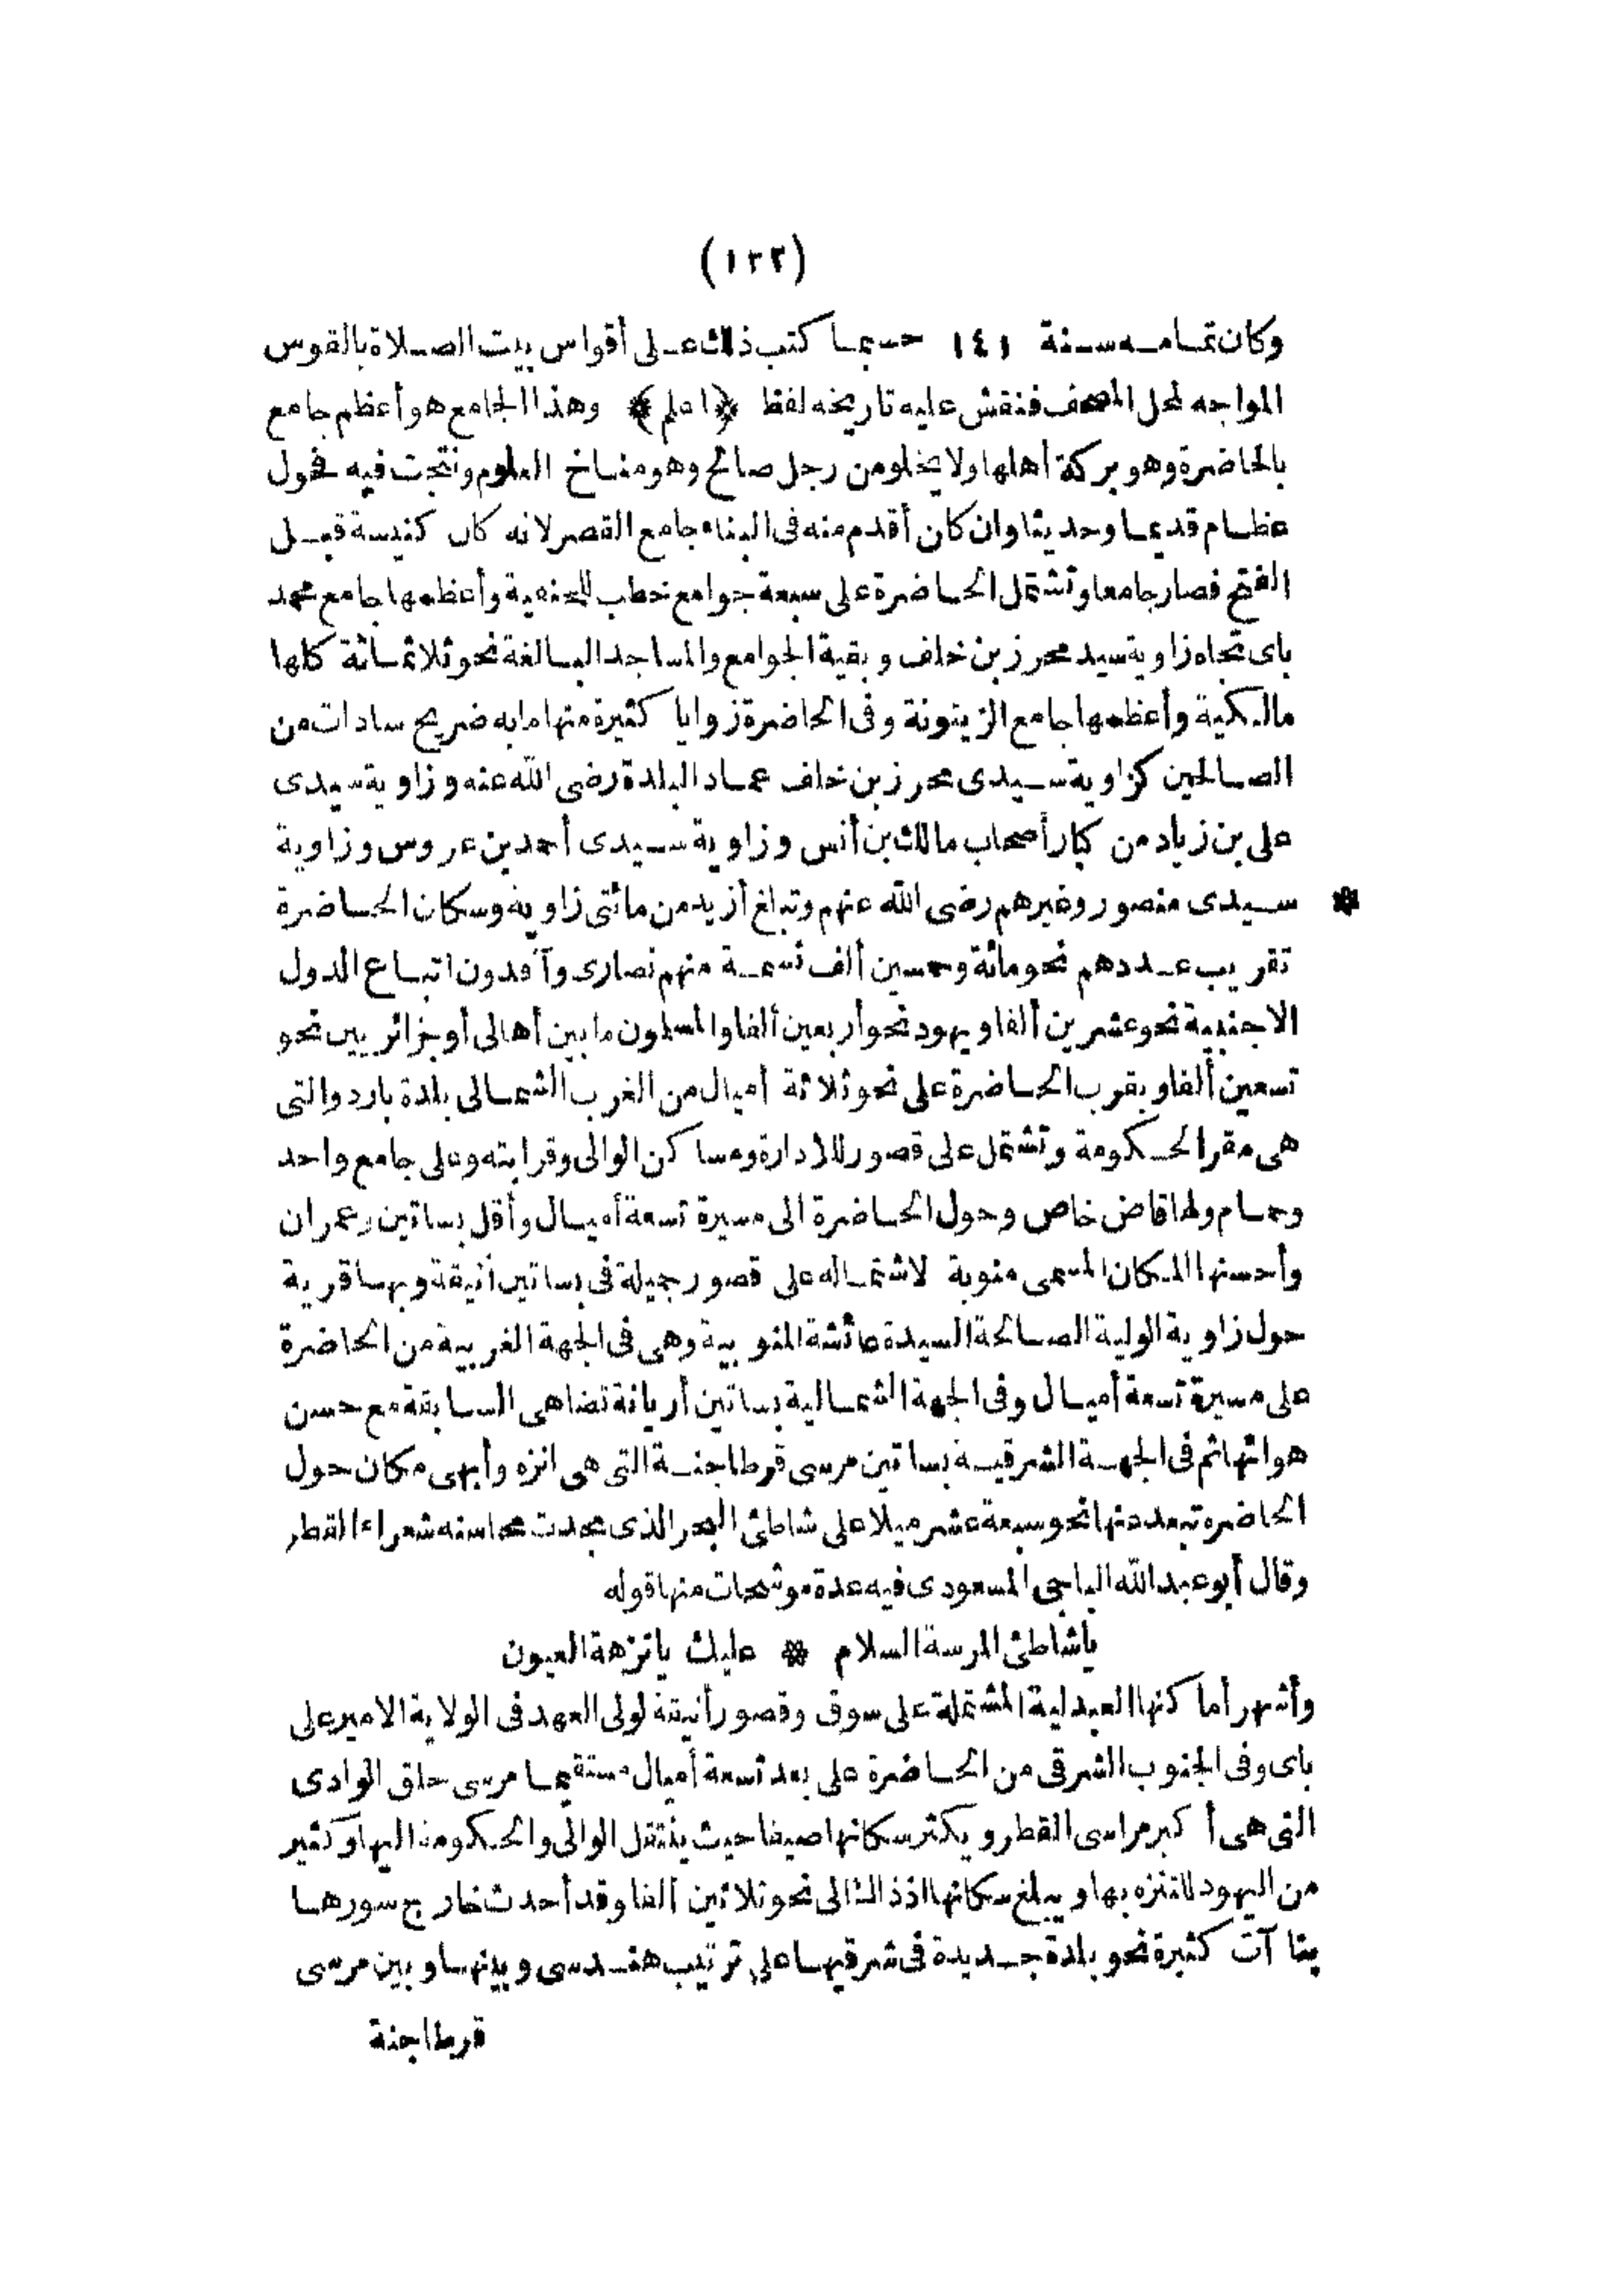 (١٣٢)
وكان تمامه سنة ١٤١ حسبما كتب ذلك على أقواس بيت الصلاة بالقوس
المواجه لمحل المصحف فنقش عليه تاريخه لفظ ﴿اعلم﴾ وهذا الجامع هو أعظم جامع
بالحاضرة وهو بركة أهلها ولا يخلو من رجل صالح وهو مناخ العلوم ونتجت فيه فحول
عظام قديما وحديثا وان كان أقدم منه فى البناء جامع القصر لانه كان كنيسة قبل
الفتح فصار جامعا وتشتمل الحاضرة على سبعة جوامع خطب للحنفية وأعظمها جامع محمد
باى تجاه زاوية سيد محرز بن خلف وبقية الجوامع والمساجد البالغة نحو ثلاثمائة كلها
مالكية وأعظمها جامع الزيتونة وفى الحاضرة زوايا كثيرة منها ما به ضريح سادات من
الصالحين كزاوية سيدى محرز بن خلف عماد البلدة رضى الله عنه وزاوية سيدى
على بن زياد من كبار أصحاب مالك بن أنس وزاوية سيدى أحمد بن عروس وزاوية
* سيدى منصور وغيرهم رضى الله عنهم وتبلغ أزيد من مائتى زاوية وسكان الحاضرة
تقريب عددهم نحو مائة وخمسين ألف نسمة منهم نصارى وآفدون اتباع الدول
الاجنبية نحو عشرين ألفا ويهود نحو أربعين ألفا والمسلمون ما بين أهالى أو جزائريين نحو
تسعين ألفا وبقرب الحاضرة على نحو ثلاثة أميال من الغرب الشمالى بلدة باردو التى
هى مقر الحكومة وتشتمل على قصور للادارة ومساكن الوالى وقرابته وعلى جامع واحد
وحمام ولها قاض خاص وحول الحاضرة الى مسيرة تسعة أميال وأقل بساتين وعمران
وأحسنها المكان المسمى منوبة لاشتماله على قصور جميلة فى بساتين أنيقة وبها قرية
حول زاوية الولية الصالحة السيدة عائشة المنوبية وهى فى الجهة الغربية من الحاضرة
على مسيرة تسعة أميال وفى الجهة الشمالية بساتين أريانة تضاهى السابقة مع حسن
هوائها ثم فى الجهة الشرقية بساتين مرسى قرطاجنة التى هى انزه وأبهى مكان حول
الحاضرة تبعد منها نحو سبعة عشر ميلا على شاطئ البحر الذى مجدت محاسنه شعراء القطر
وقال أبو عبد الله الباجى المسعودى فيه عدة موشحات منها قوله
يا شاطئ المرسة السلام * عليك يا نزهة العيون
وأشهر أماكنها العبدلية المشتملة على سوق وقصور أنيقة لولى العهد فى الولاية الامير على
باى وفى الجنوب الشرقى من الحاضرة على بعد تسعة أميال مستقيما مرسى حلق الوادى
التى هى أكبر مراسى القطر ويكثر سكانها صيفا حيث ينتقل الوالى والحكومة اليها وكثير
من اليهود للتنزه بها ويبلغ سكانها اذ ذاك الى نحو ثلاثين ألفا وقد أحدث خارج سورها
بنا آت كثيرة نحو بلدة جديدة فى شرقيها على ترتيب هندسى وبينها وبين مرسى
قرطاجنة